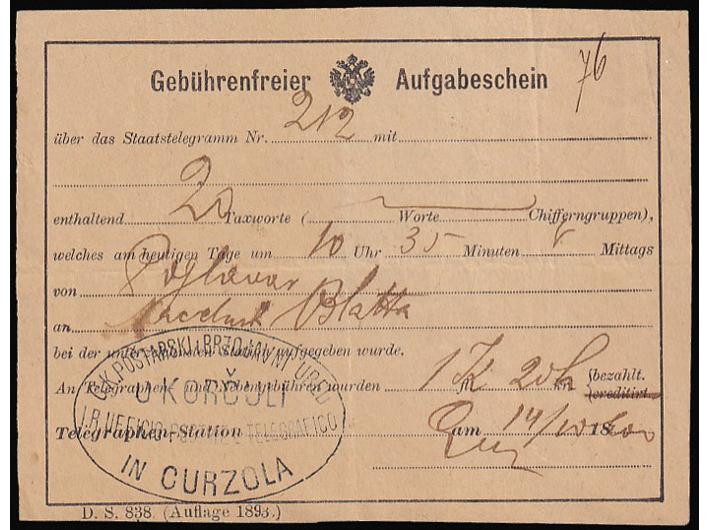 76
Gebührenfreier Aufgabeschein
über das Staatstelegramm Nr. 212 mit
enthaltend 20 Taxworte ( Worte Chifferngruppen),
welches am heutigen Tage um 10 Uhr 35 Minuten Mittags
von Poglavar
an Blatta
bei der unterzeichneten Station aufgegeben wurde.
An Telegraphen- und Nebengebühren wurden 1 K 20 h bezahlt.
creditirt.
Telegraphen-Station am 14/10 18
C.K. POŠTARSKI I BRZOJAVNI URED
U KORČULI
I.R. UFFICIO POSTALE E TELEGRAFICO
IN CURZOLA
D. S. 838. (Auflage 1893.)